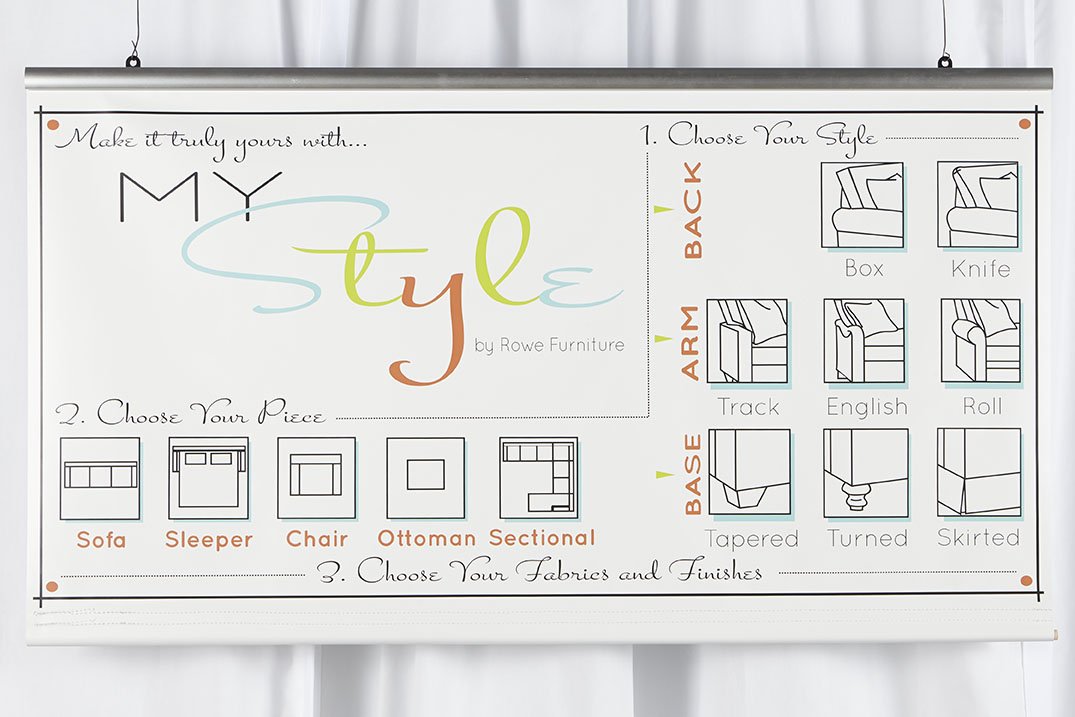 Make it truly yours with...
MY
Style
by Rowe Furniture
1. Choose Your Style
BACK
Box
Knife
ARM
Track
English
Roll
BASE
Tapered
Turned
Skirted
2. Choose Your Piece
Sofa
Sleeper
Chair
Ottoman
Sectional
3. Choose Your Fabrics and Finishes